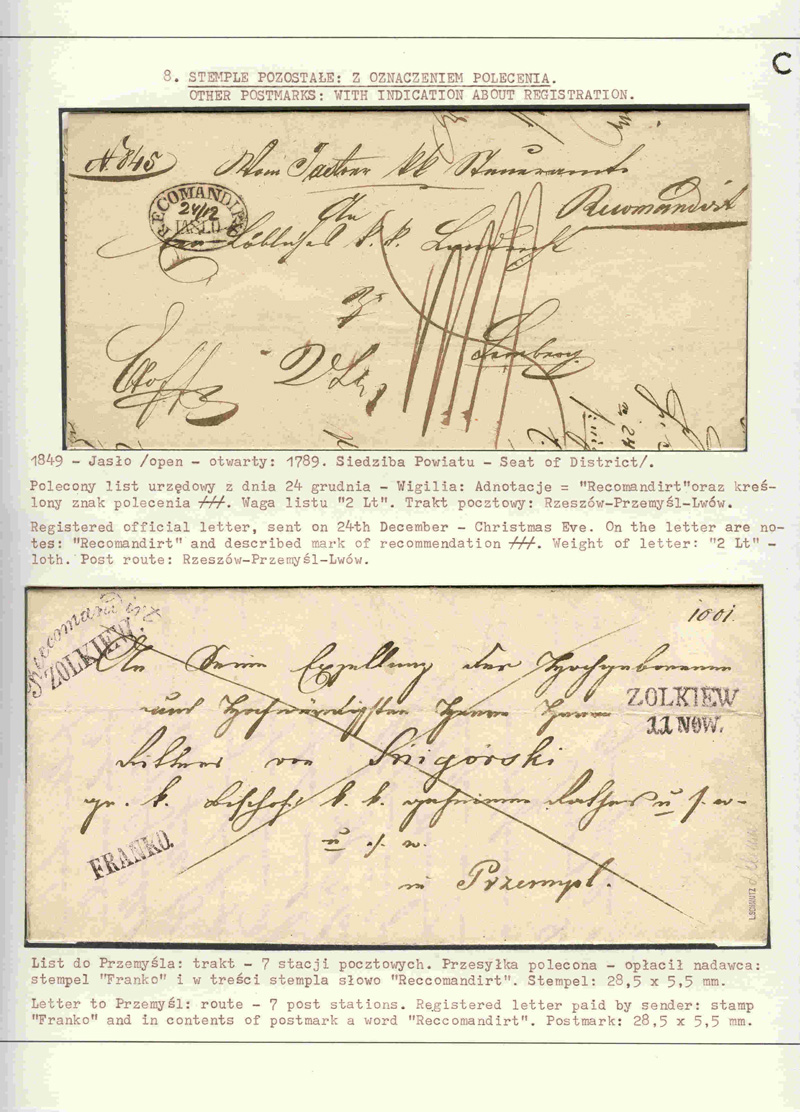 C
8. STEMPLE POZOSTAŁE: Z OZNACZENIEM POLECENIA.
OTHER POSTMARKS: WITH INDICATION ABOUT REGISTRATION.
N. 845
Vom Jasloer kk Steueramte
RECOMANDIRT
24/12
JASLO
Recomandirt
An
Ein Löbliches k. k. Landrecht
zu
Lemberg
2 Lt
1849 - Jasło /open - otwarty: 1789. Siedziba Powiatu - Seat of District/.
Polecony list urzędowy z dnia 24 grudnia - Wigilia: Adnotacje = "Recomandirt"oraz kreś-
lony znak polecenia ///. Waga listu "2 Lt". Trakt pocztowy: Rzeszów-Przemyśl-Lwów.
Registered official letter, sent on 24th December - Christmas Eve. On the letter are no-
tes: "Recomandirt" and described mark of recommendation ///. Weight of letter: "2 Lt" -
loth. Post route: Rzeszów-Przemyśl-Lwów.
Reccomandirt
ZOLKIEW.
1001.
An Seine Exzellenz des Hochgeborenen
und Hochwürdigsten Herrn Herrn
ZOLKIEW
11 NOW.
Ritter von Snigórski
gr. k. Bischofs k. k. geheimen Rathes u. s. w.
u. s. w.
FRANKO.
in Przemysl.
List do Przemyśla: trakt - 7 stacji pocztowych. Przesyłka polecona - opłacił nadawca:
stempel "Franko" i w treści stempla słowo "Reccomandirt". Stempel: 28,5 x 5,5 mm.
Letter to Przemyśl: route - 7 post stations. Registered letter paid by sender: stamp
"Franko" and in contents of postmark a word "Reccomandirt". Postmark: 28,5 x 5,5 mm.